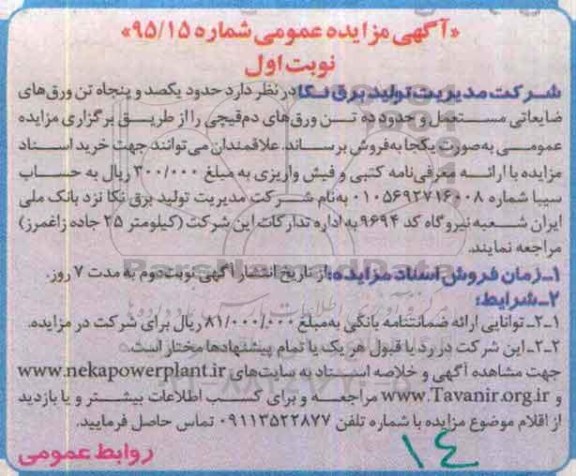 «آگهی مزایده عمومی شماره ۹۵/۱۵»
نوبت اول
شرکت مدیریت تولید برق نکا در نظر دارد حدود یکصد و پنجاه تن ورق‌های
ضایعاتی مستعمل و حدود ده تن ورق‌های دم‌قیچی را از طریق برگزاری مزایده
عمومی به‌صورت یکجا به‌فروش برساند. علاقمندان می‌توانند جهت خرید اسناد
مزایده با ارائه معرفی‌نامه کتبی و فیش واریزی به مبلغ ۳۰۰/۰۰۰ ریال به حساب
سیبا شماره ۰۱۰۵۶۹۲۷۱۶۰۰۸ به‌نام شرکت مدیریت تولید برق نکا نزد بانک ملی
ایران شعبه نیروگاه کد ۹۶۹۴ به اداره تدارکات این شرکت (کیلومتر ۲۵ جاده زاغمرز)
مراجعه نمایند.
۱ـ زمان فروش اسناد مزایده: از تاریخ انتشار آگهی نوبت دوم به مدت ۷ روز.
۲ـ شرایط:
۲ـ۱ـ توانایی ارائه ضمانتنامه بانکی به‌مبلغ ۸۱/۰۰۰/۰۰۰ ریال برای شرکت در مزایده.
۲ـ۲ـ این شرکت در رد یا قبول هر یک یا تمام پیشنهادها مختار است.
جهت مشاهده آگهی و خلاصه اسناد به سایت‌های www.nekapowerplant.ir
و www.Tavanir.org.ir مراجعه و برای کسب اطلاعات بیشتر و یا بازدید
از اقلام موضوع مزایده با شماره تلفن ۰۹۱۱۳۵۲۲۸۷۷ تماس حاصل فرمایید.
روابط عمومی
۱۴